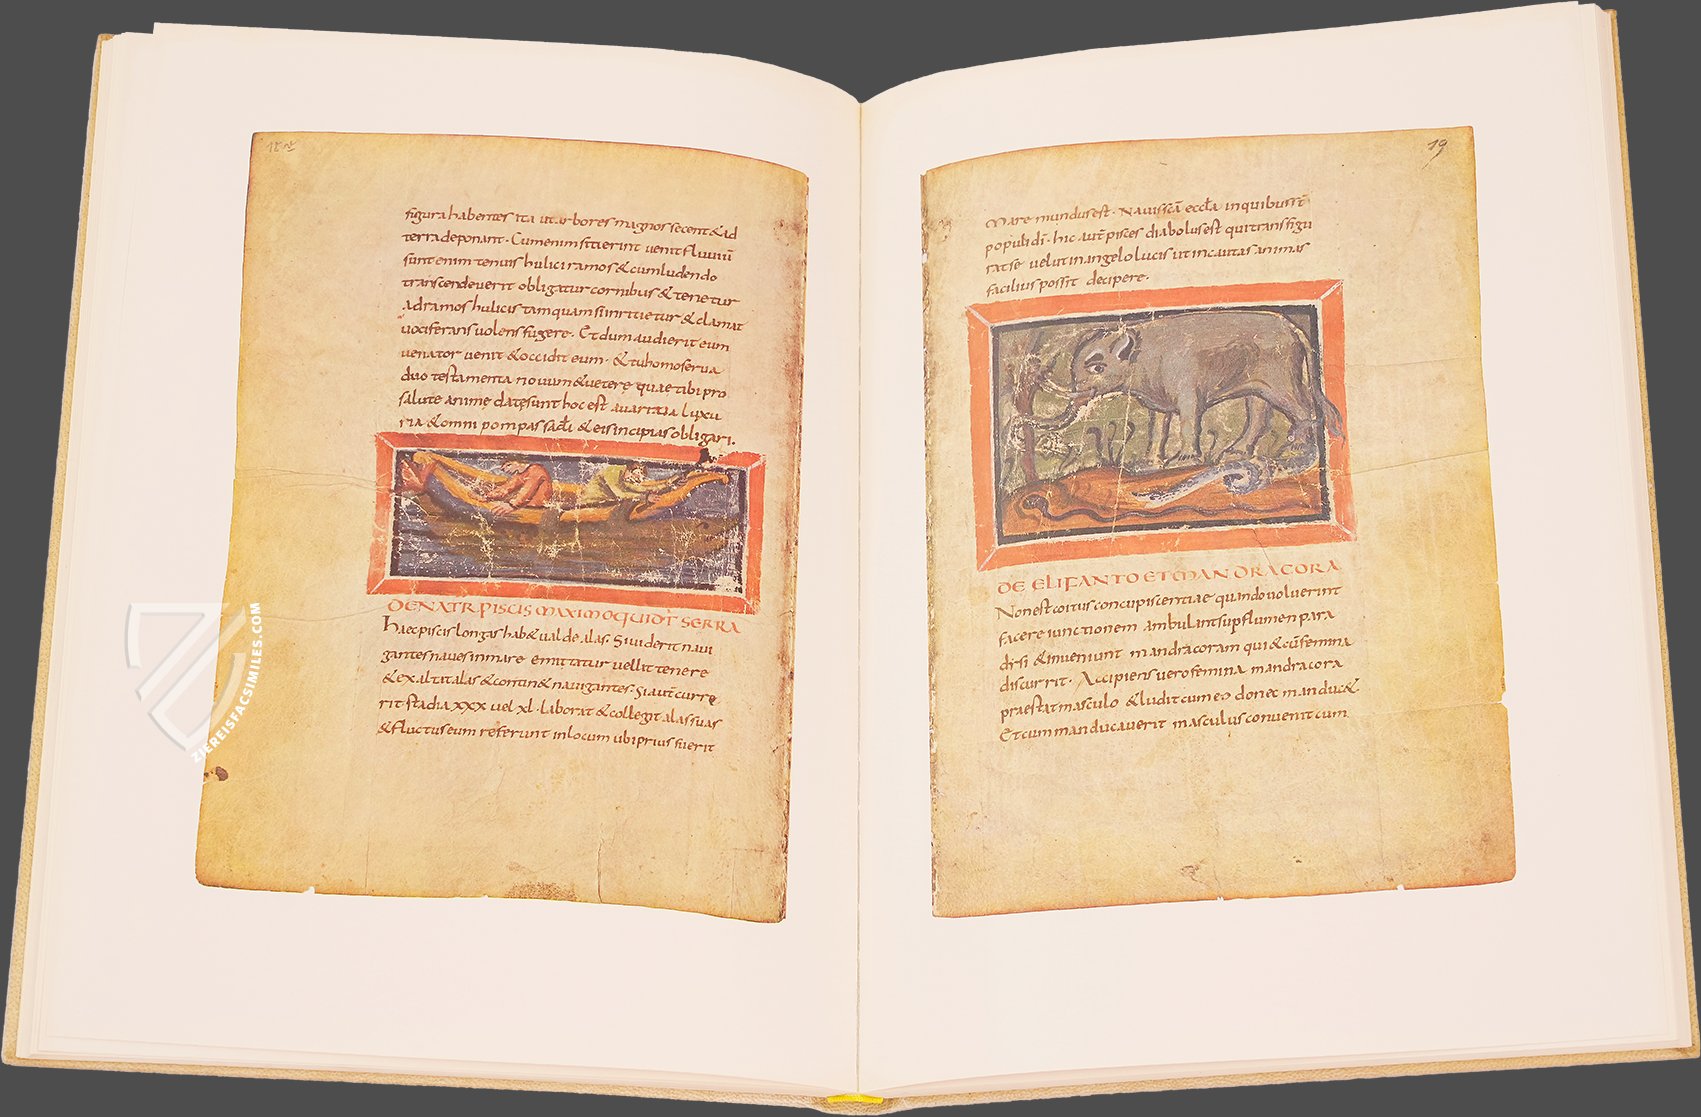 figura habentes ita ut arbores magnos secent & ad
terra deponant. Cum enim sitierint venit fluviū
sunt enim tenuis huliciramos & cum ludendo
transcendeverit obligatur cornibus & tenetur
ad ramos hulicis tamquam si inritietur & clamat
vociferans volens fugere. Et dum audierit eum
venator venit & occidit eum. & tu homo serva
duo testamenta novum & vetere quae tibi pro
salute anime date sunt hoc est avaritia luxu
ria & omni pompas & eis incipias obligari.
DENATR PISCIS MAXIMO QUI DR SERRA
Haec piscis longas hab& valde alas. Si viderit navi
gantes naves in mare emittatur vellit tenere
& exaltit alas & contin& navigantes. Si aut curre
rit stadia xxx vel xl. laborat & collegit alas suas
& fluctus eum referunt in locum ubi prius fuerit
19
Mare mundus est. Navis eccla in quibus
populi di. hic aut pisces diabolus est qui transfigu
rat se velut in angelo lucis ut incautas animas
facilius possit decipere.
DE ELIFANTO ET MANDRACORA
Non est coitus concupiscentiae quando voluerint
facere iunctionem ambulant sup flumen para
disi & inveniunt mandracoram qui & cū femina
discurrit. Accipiens vero femina mandracora
praestat masculo & ludit cum eo donec manduc&
Et cum manducaverit masculus convenit cum
ZIEREISFACSIMILES.COM